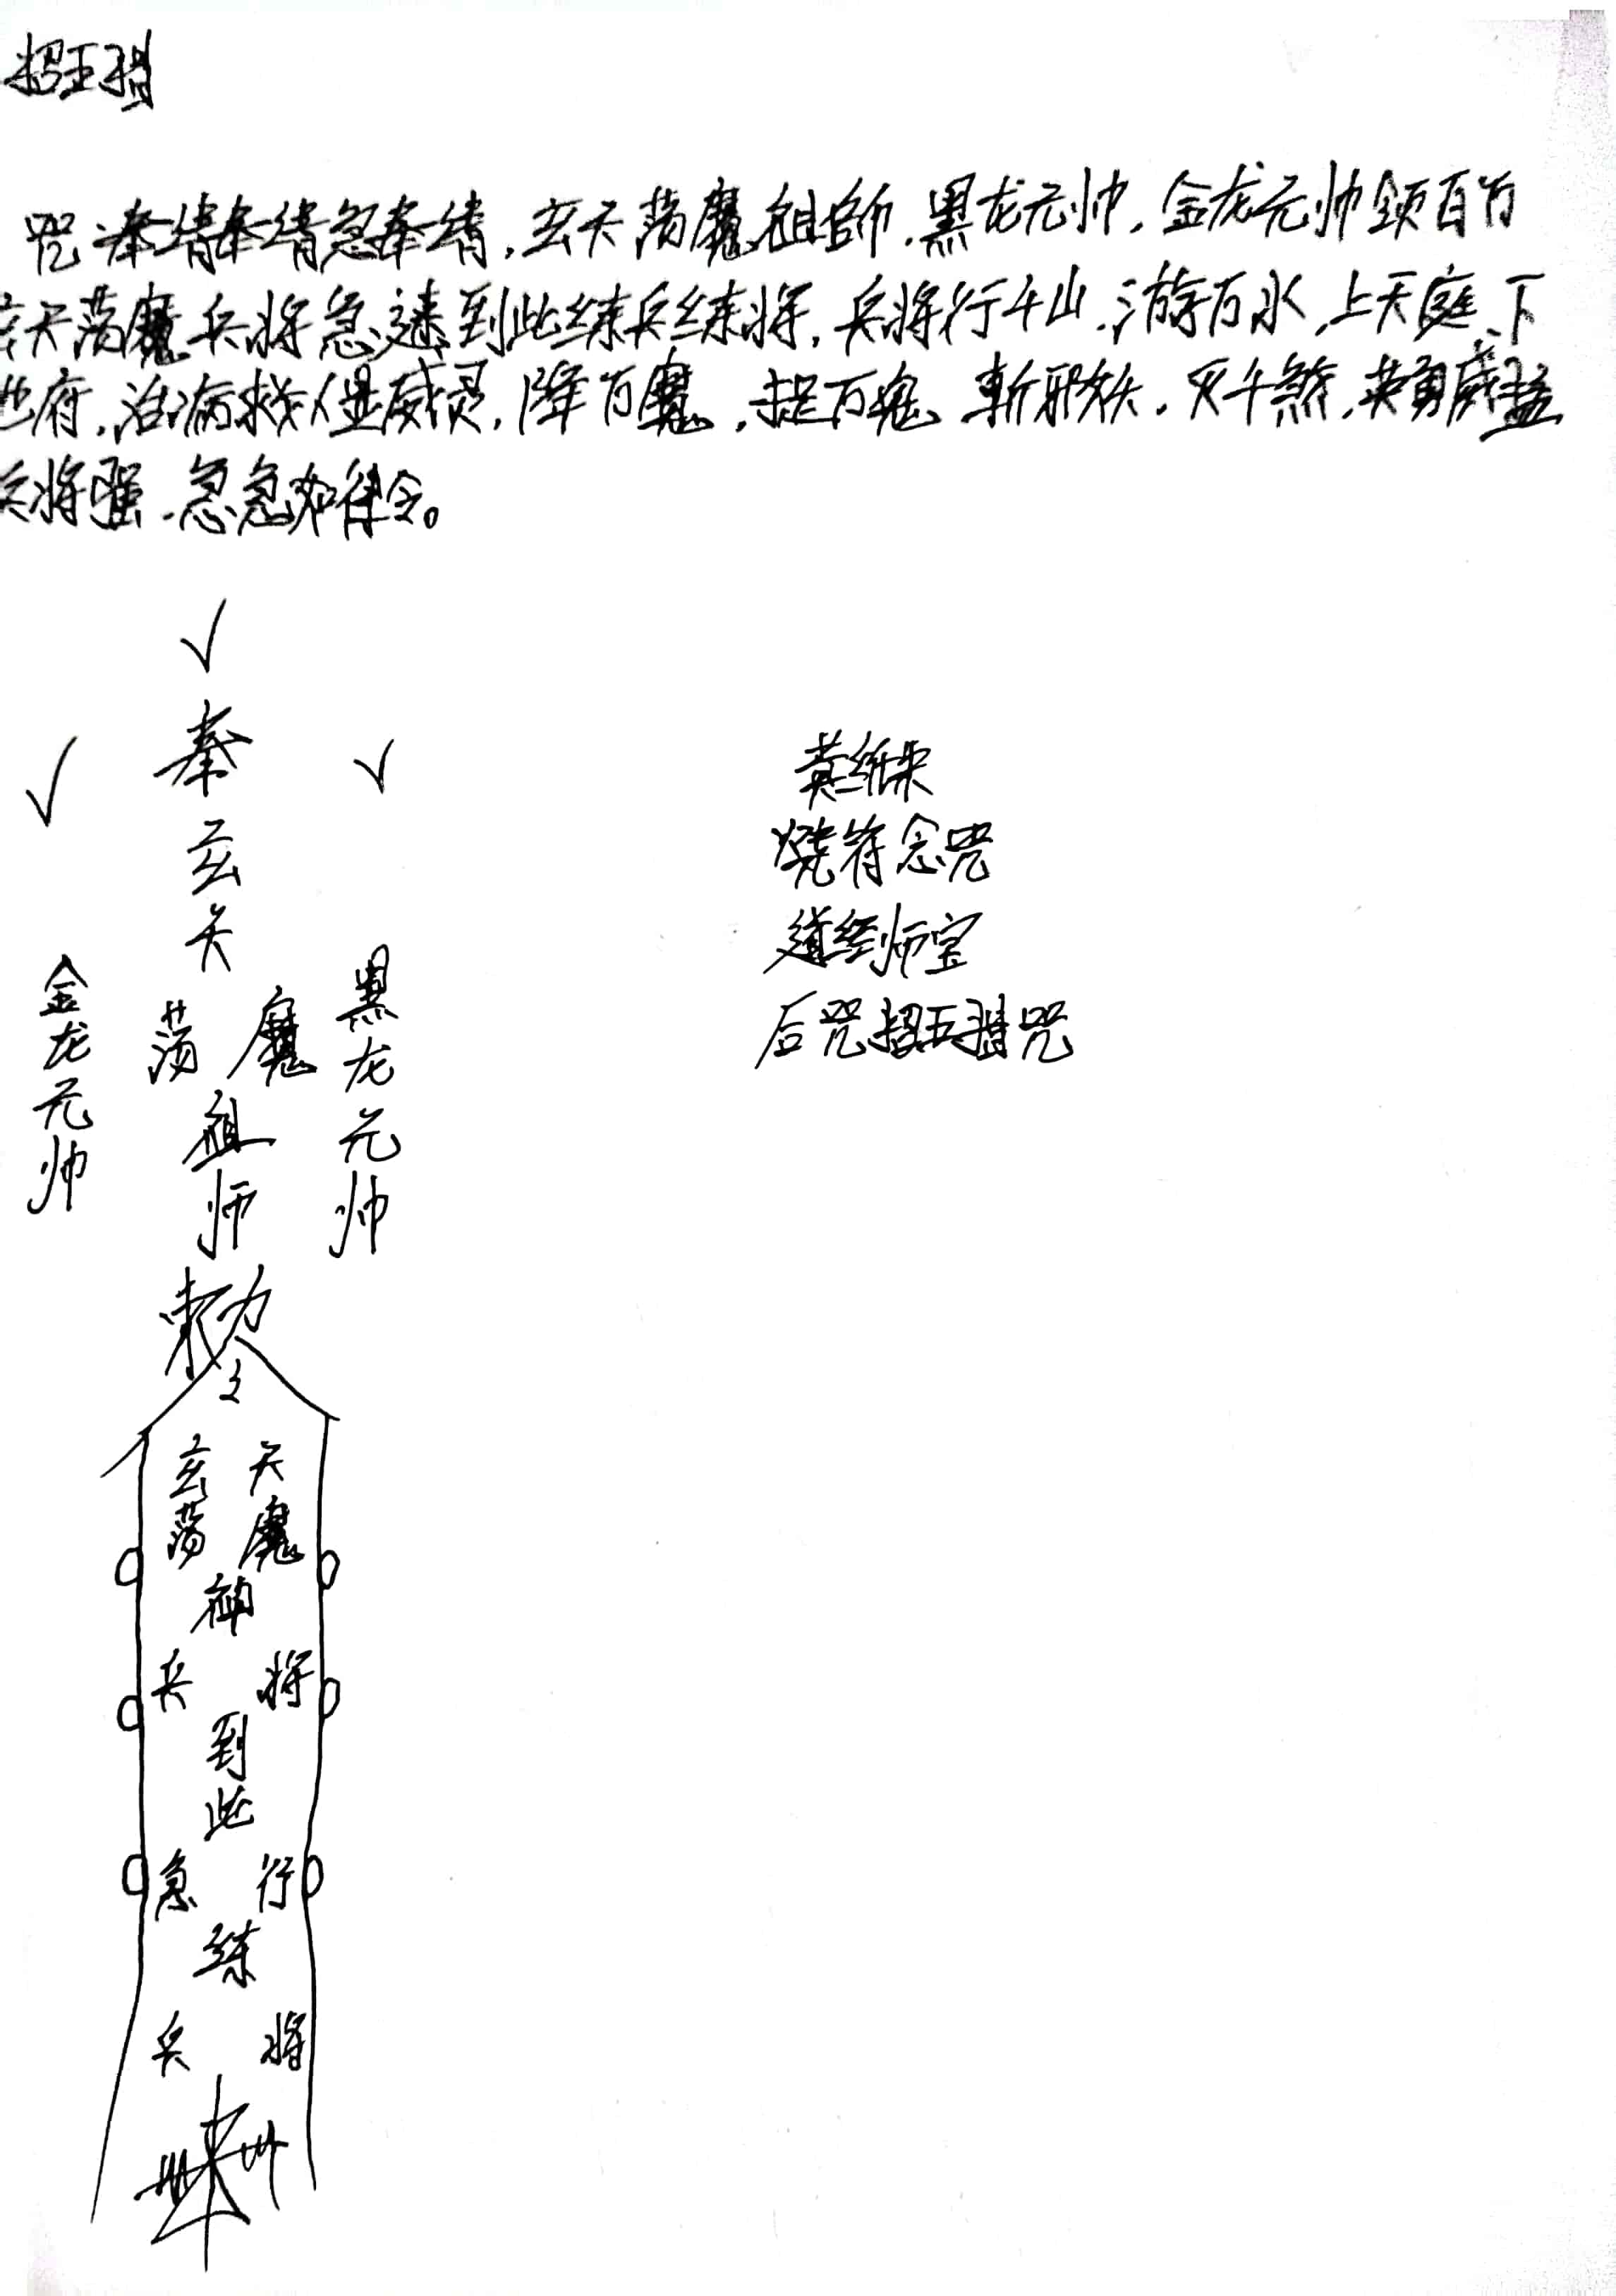 招五猖
咒:奉请奉请急奉请,玄天荡魔祖師,黑龙元帅,金龙元帅领百万
玄天荡魔兵将急速到此练兵练将,兵将行千山,游万水,上天庭、下
地府,治病救人显威灵,降百魔,捉万鬼,斩邪妖,灭千煞,英勇威猛
兵将强,急急如律令。
奉
玄
天
荡 魔
祖
师
金龙元帅
黑龙元帅
敕
令
玄 天
荡 魔
神
兵 将
到
此
急 行
练
兵 将
黄纸朱
燒符念咒
道经师宝
后咒招五猖咒